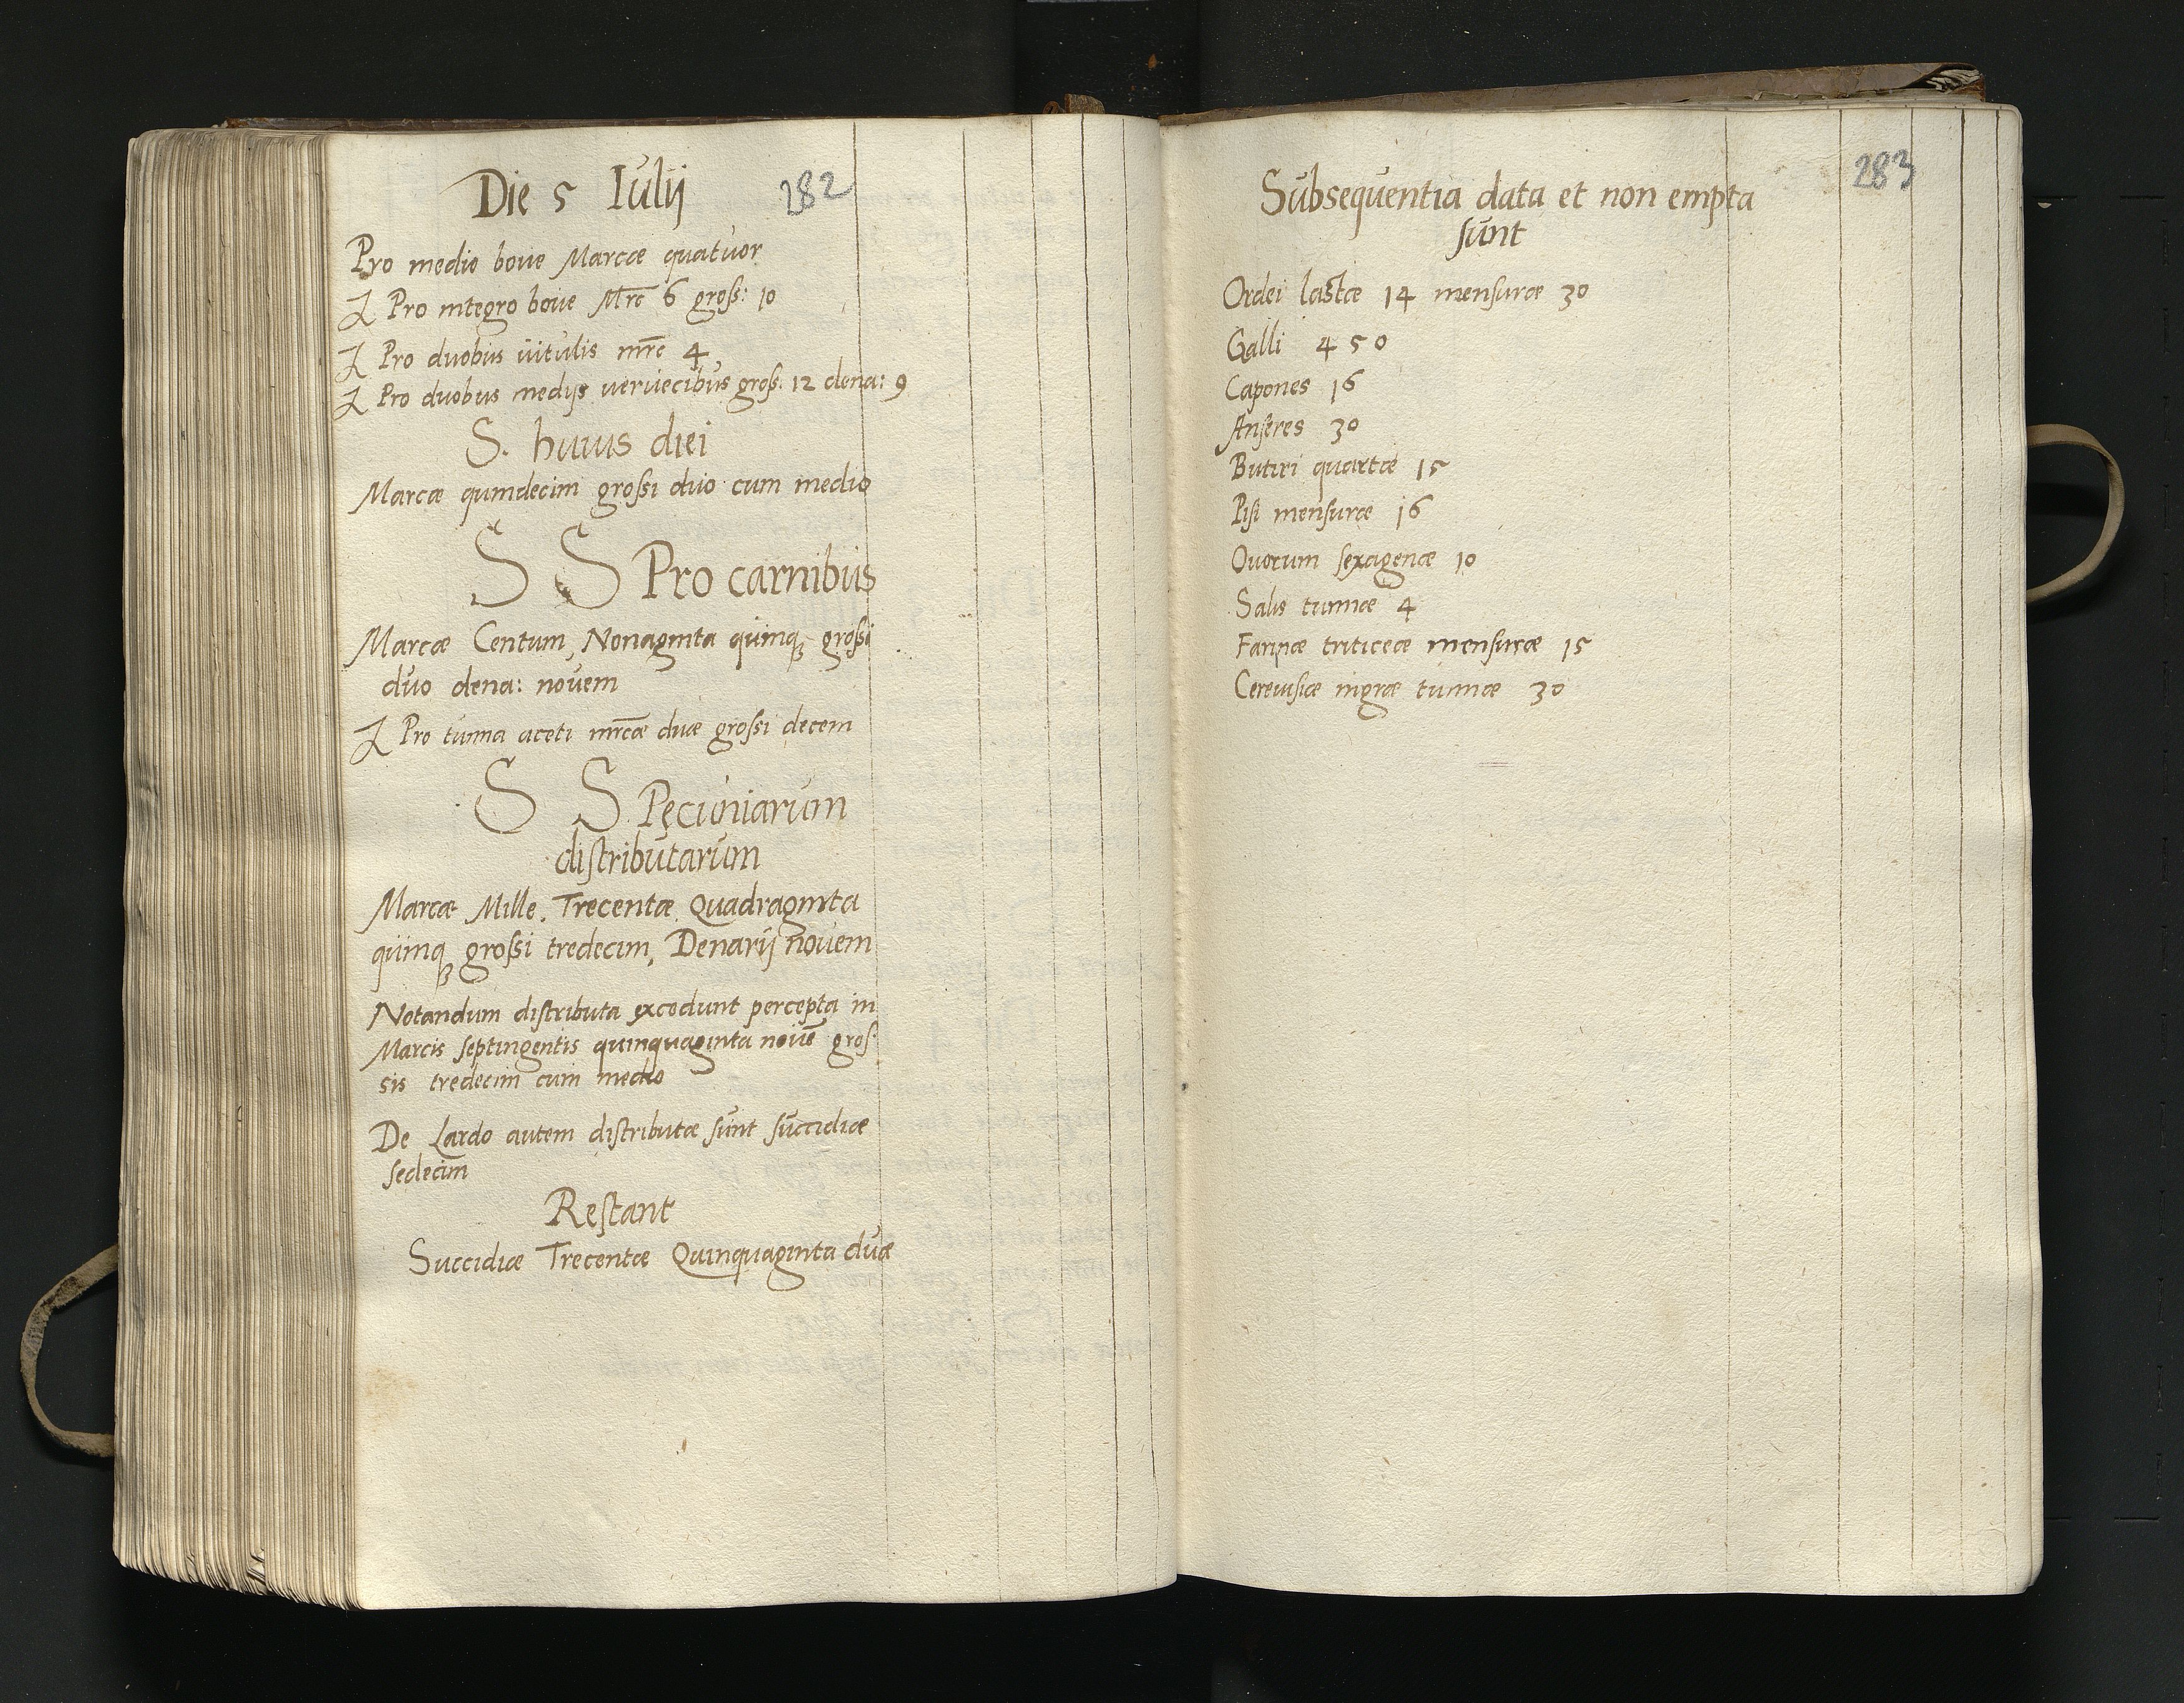 Die 5 Iulij
282
Pro medio boue Marcæ quatuor
Pro integro boue Mrc̄ 6 gross: 10
Pro duobus uitulis mrc̄ 4
Pro duobus medijs veruecibus gross: 12 dena: 9
S. huius diei
Marcæ quindecim grossi duo cum medio
S S Pro carnibus
Marcæ Centum, Nonaginta quinqꝫ grossi
duo dena: novem
Pro tunna aceti mrcæ duæ grossi decem
S S Pecuniarum
distributarum
Marcæ Mille. Trecentæ Quadraginta
quinqꝫ grossi tredecim, Denarij novem
Notandum distributa excedunt percepta in
Marcis septingentis quinquaginta novē gros-
sis tredecim cum medio
De Lardo autem distributæ sunt succidiæ
sedecim
Restant
Succidiæ Trecentæ Quinquaginta duæ
283
Subsequentia data et non empta
sunt
Ordei lastæ 14 mensuræ 30
Galli 450
Capones 16
Anseres 30
Butiri quartæ 15
Pisi mensuræ 16
Ouorum sexagenæ 10
Salis tunnæ 4
Farinæ triticeæ mensuræ 15
Cereuisiæ nigræ tunnæ 30